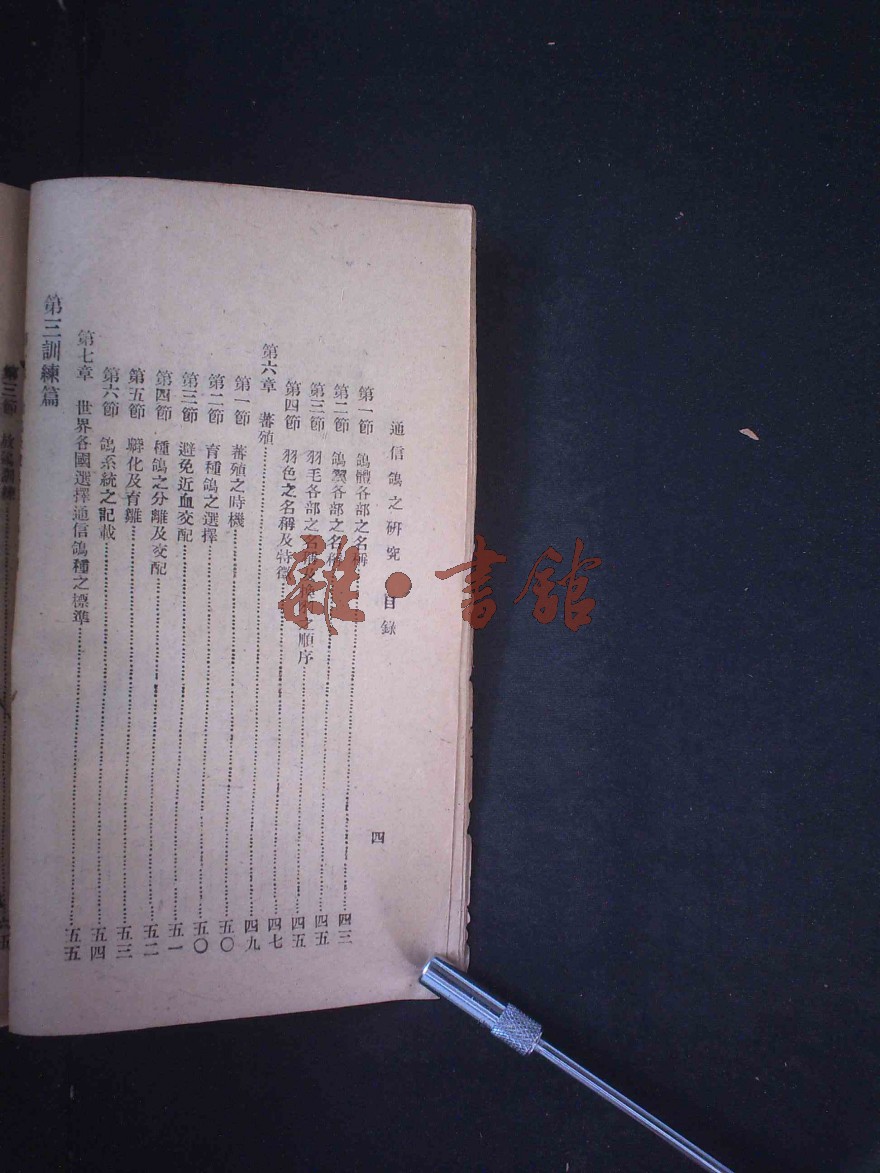 通信鴿之研究　目錄　四
第一節　鴿體各部之名稱……四三
第二節　鴿翼各部之名稱……四五
第三節　羽毛各部之名　順序……四五
第四節　羽色之名稱及特徵……四七
第六章　蕃殖……四九
第一節　蕃殖之時機……五〇
第二節　育種鴿之選擇……五〇
第三節　避免近血交配……五一
第四節　種鴿之分離及交配……五二
第五節　孵化及育雛……五三
第六節　鴿系統之記載……五四
第七章　世界各國選擇通信鴿種之標準……五五
第三訓練篇
第三節　放　訓練……六五
雜·書館